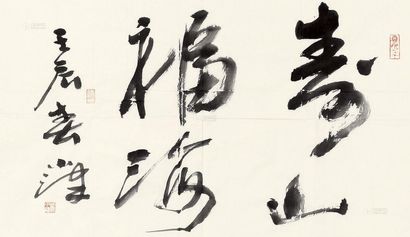 寿山
福海
壬辰春